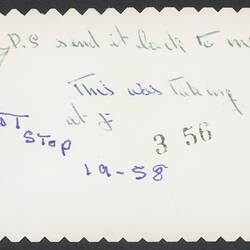 P.S send it back to m
This was taking
at
STOP
3 56
19-58